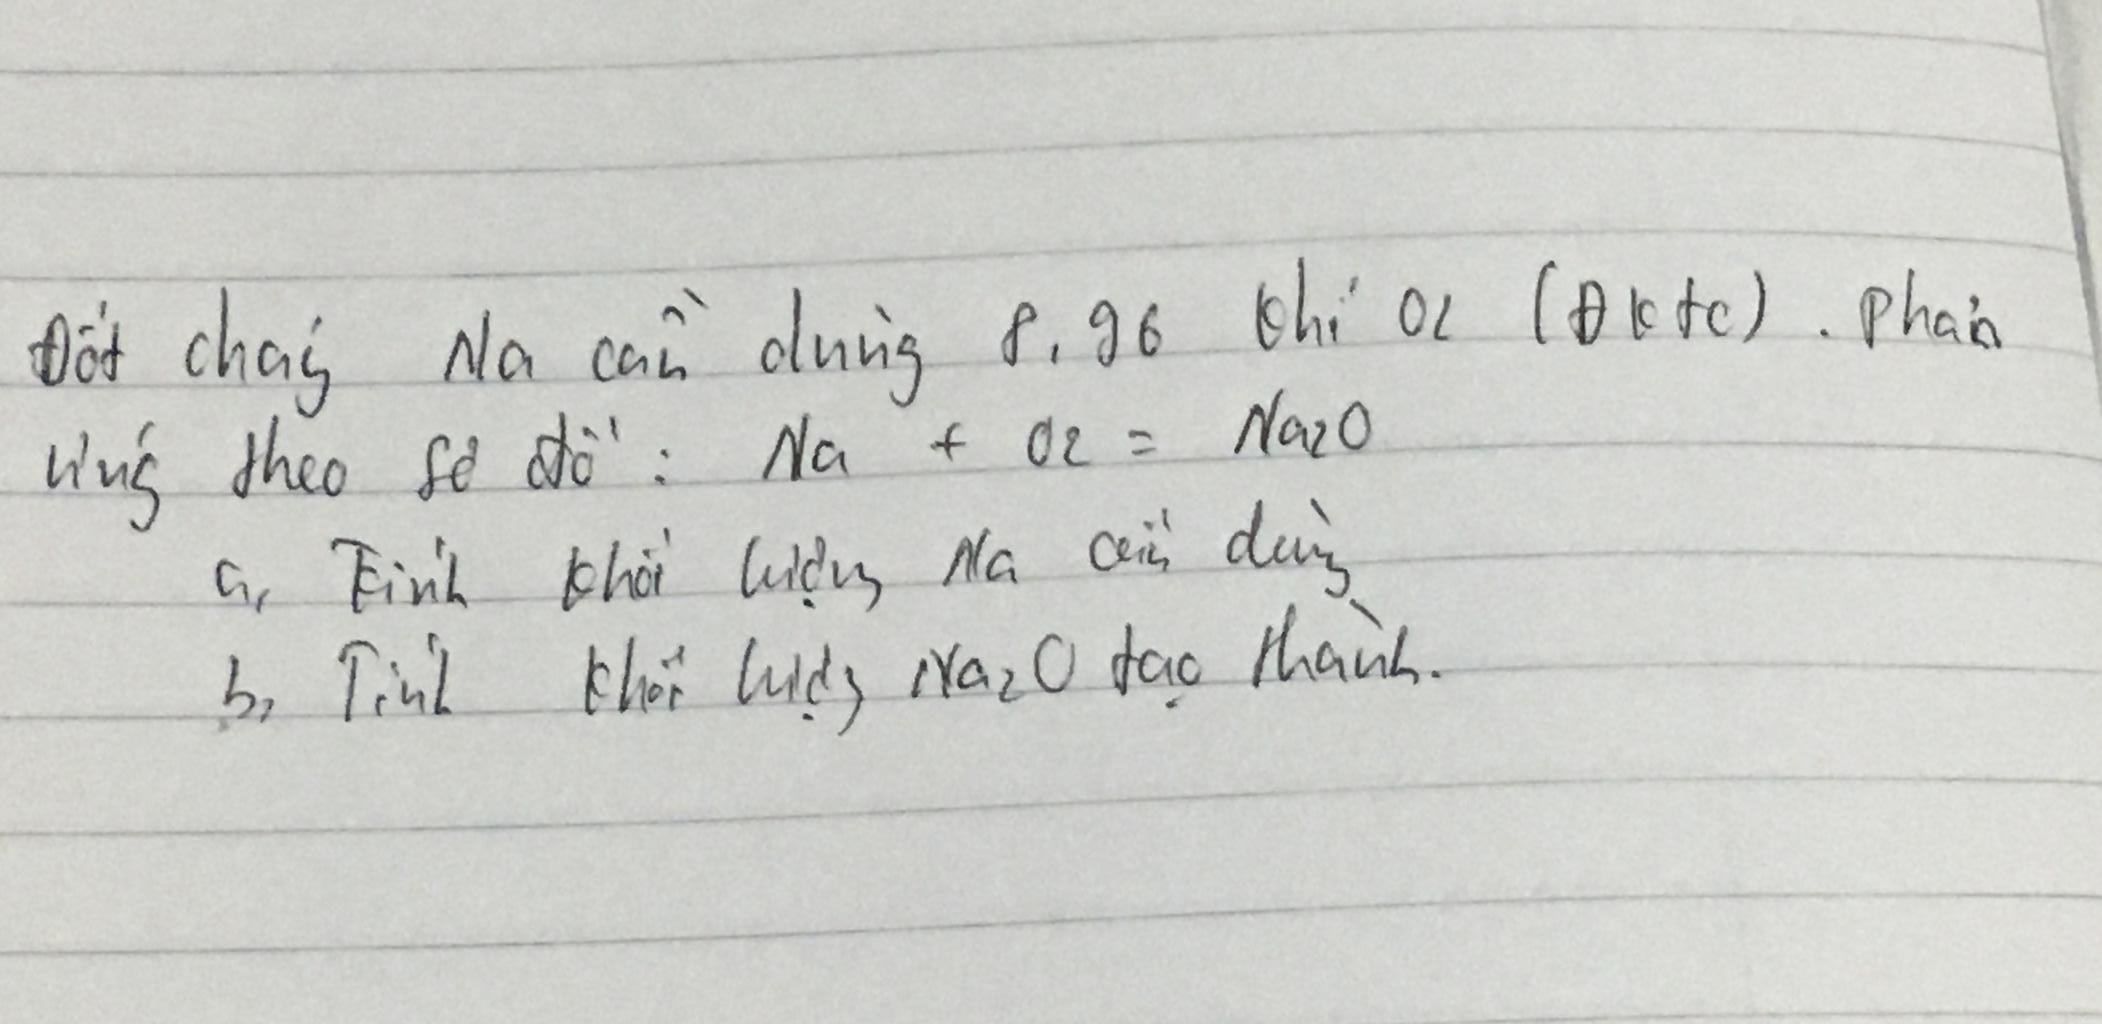 Đốt cháy Na cần dùng 8,96 khí O2 (Đktc). Phản
ứng theo sơ đồ: Na + O2 = Na2O
a, Tính khối lượng Na cần dùng
b, Tính khối lượng Na2O tạo thành.